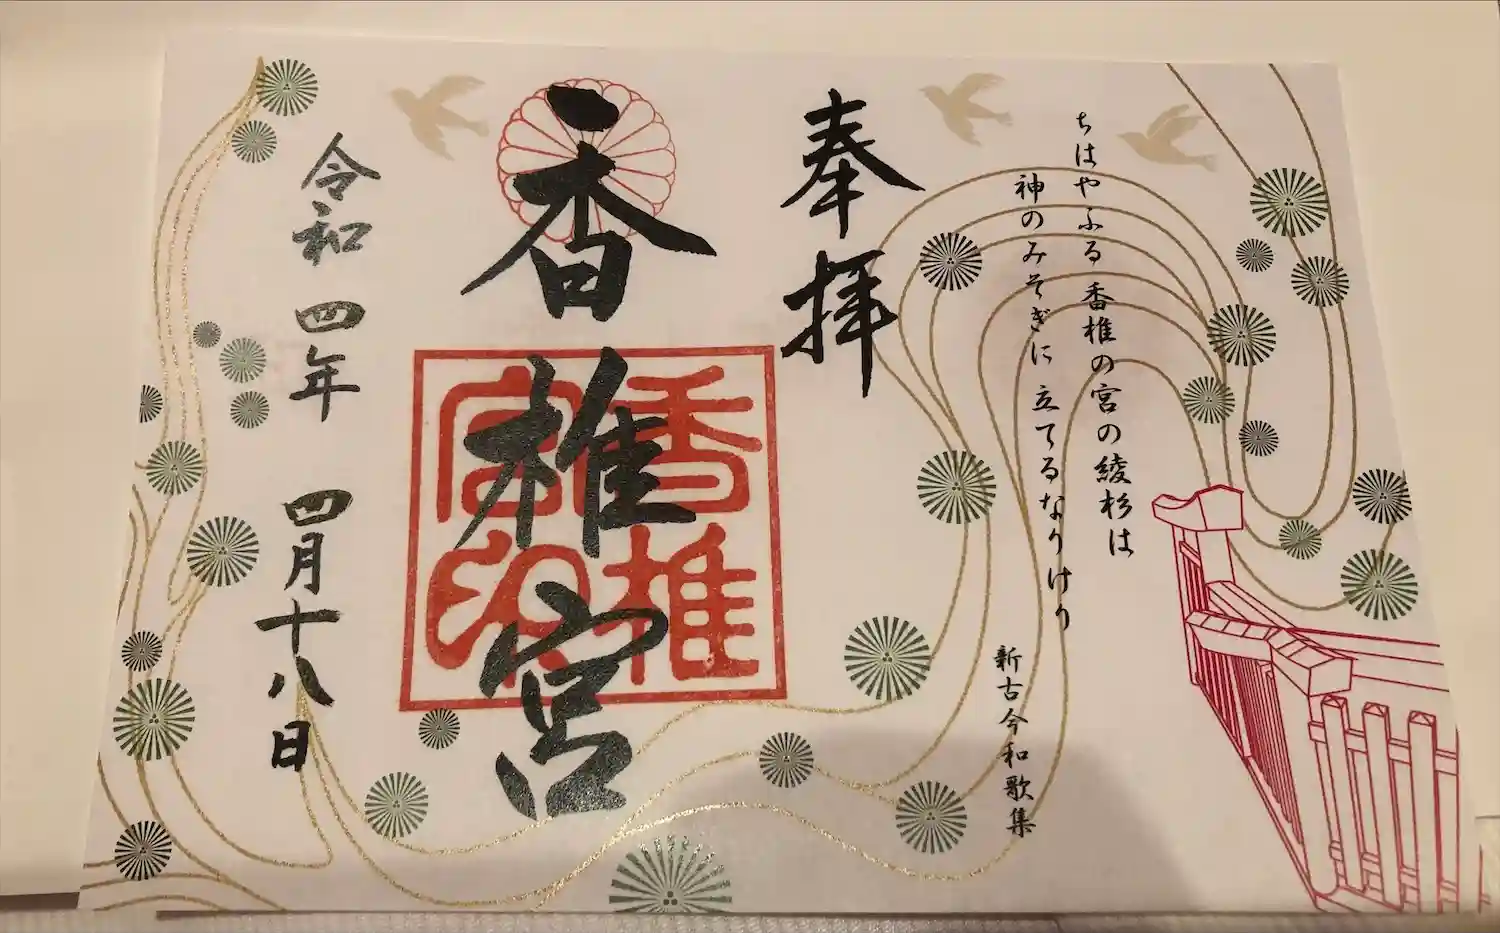 ちはやふる香椎の宮の綾杉は
神のみそぎに立てるなりけり
新古今和歌集
奉拝
香椎宮
香椎宮印
令和四年四月十八日